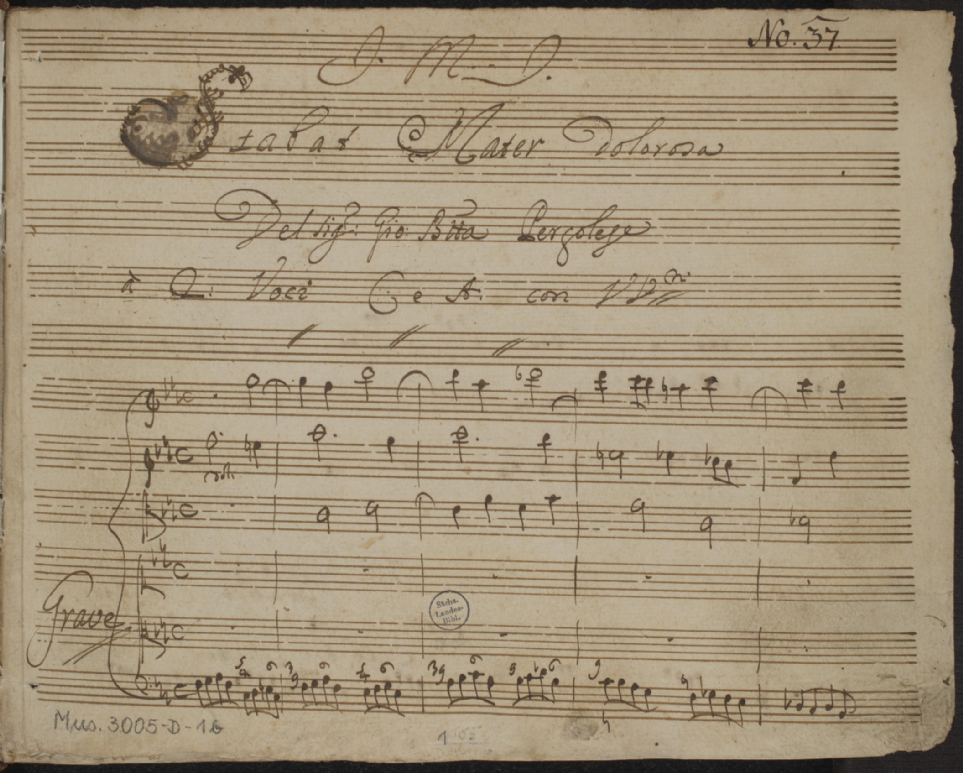 No. 37
J. M. J.
Stabat Mater Dolorosa
Del Sigr: Gio: Btta Pergolese
à 2: Voci C e A: con VVni
Grave
Sächs.
Landes-
Bibl.
Mus. 3005-D-1b
1